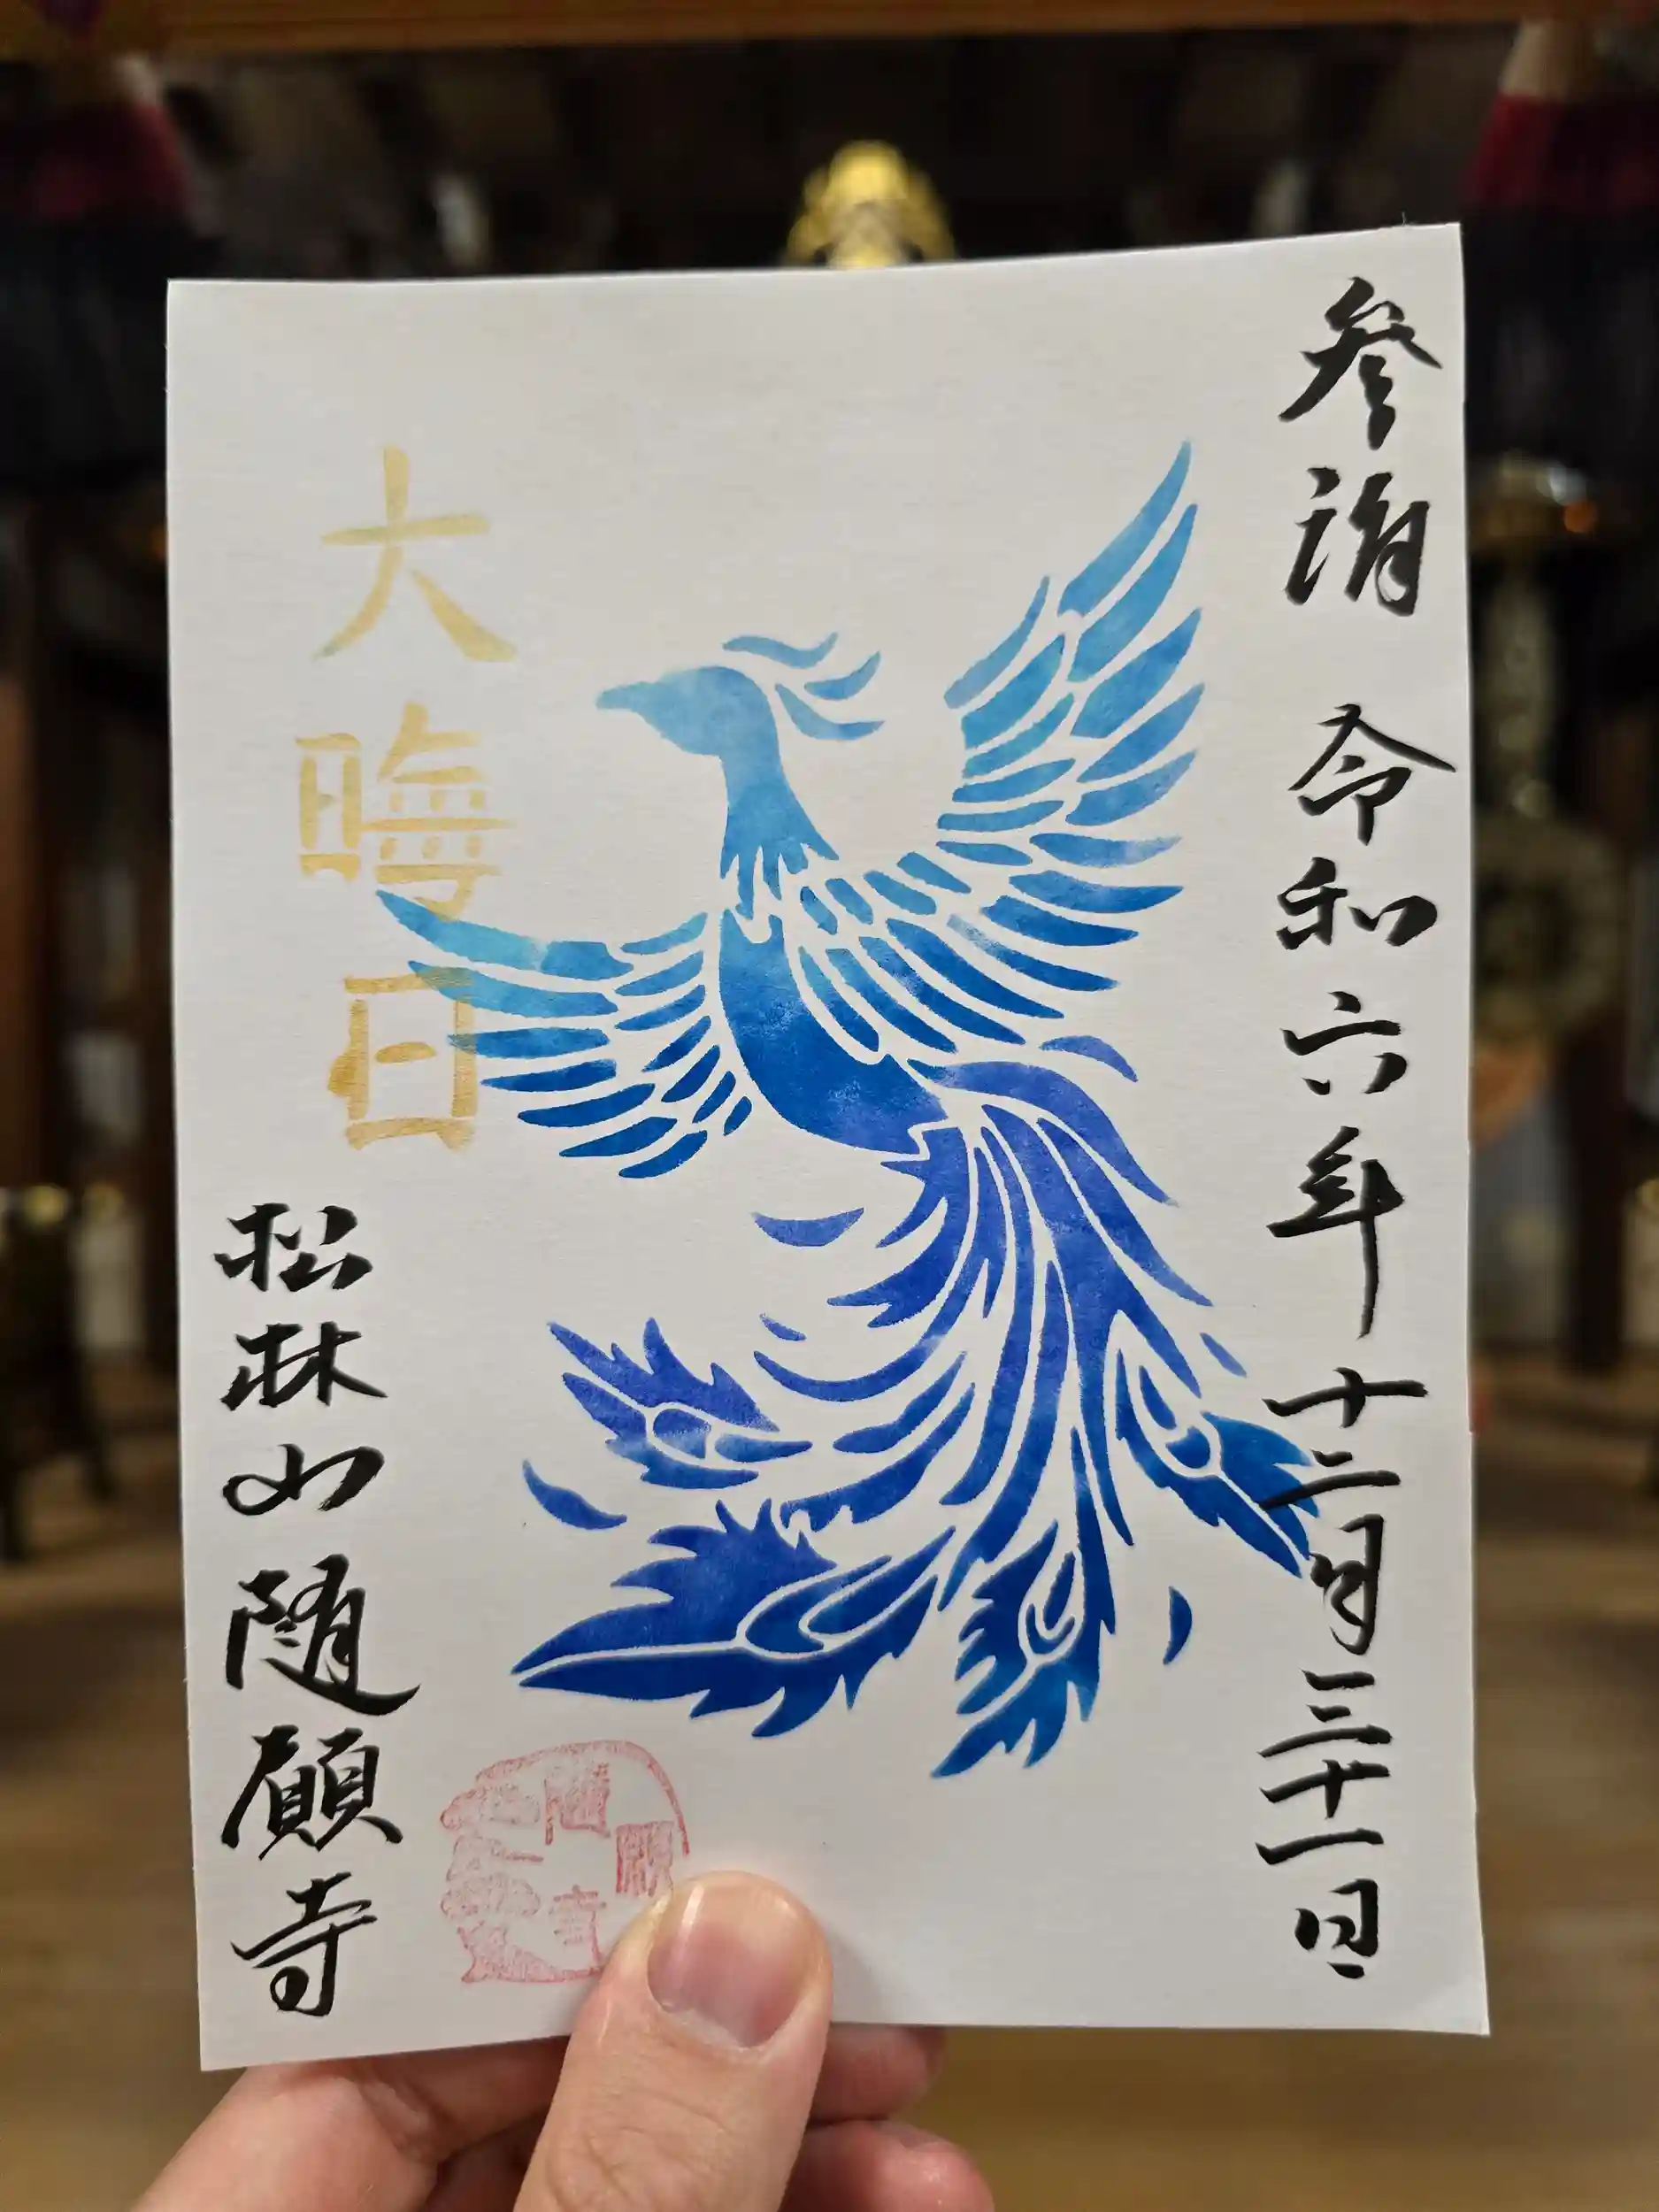 参詣 令和六年十二月三十一日
大晦日
松林山随願寺